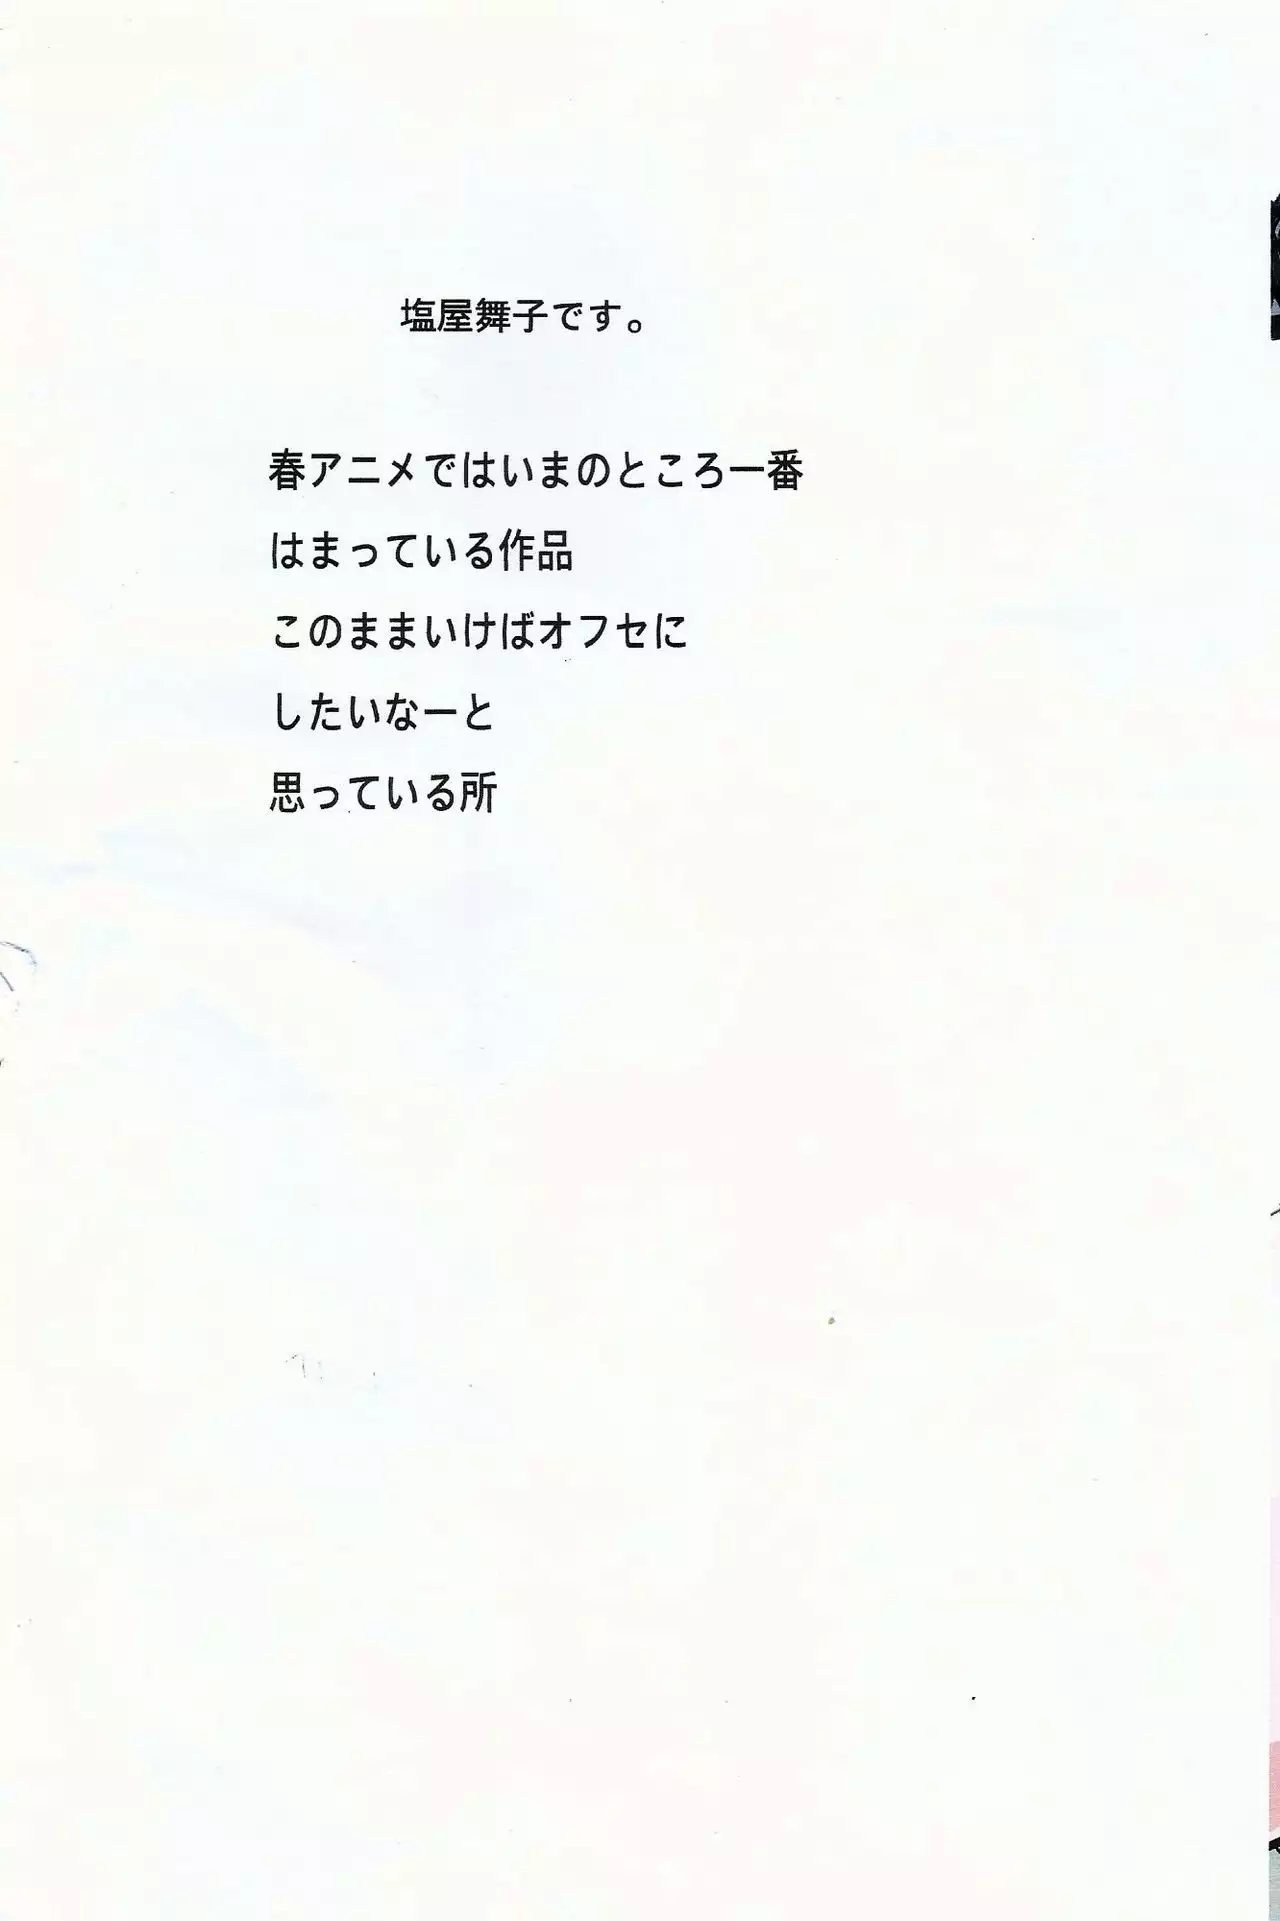 塩屋舞子です。
春アニメではいまのところ一番
はまっている作品
このままいけばオフセに
したいなーと
思っている所